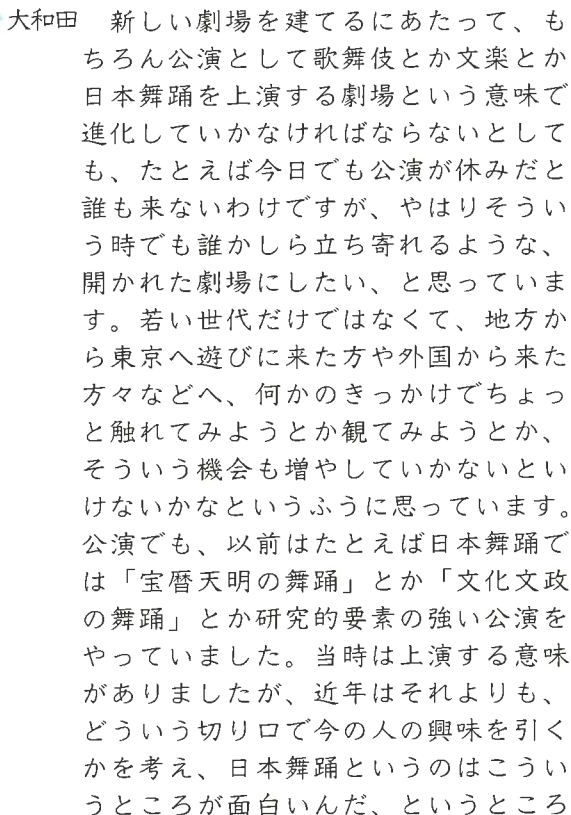 大和田　新しい劇場を建てるにあたって、も
ちろん公演として歌舞伎とか文楽とか
日本舞踊を上演する劇場という意味で
進化していかなければならないとして
も、たとえば今日でも公演が休みだと
誰も来ないわけですが、やはりそうい
う時でも誰かしら立ち寄れるような、
開かれた劇場にしたい、と思っていま
す。若い世代だけではなくて、地方か
ら東京へ遊びに来た方や外国から来た
方々などへ、何かのきっかけでちょっ
と触れてみようとか観てみようとか、
そういう機会も増やしていかないとい
けないかなというふうに思っています。
公演でも、以前はたとえば日本舞踊で
は「宝暦天明の舞踊」とか「文化文政
の舞踊」とか研究的要素の強い公演を
やっていました。当時は上演する意味
がありましたが、近年はそれよりも、
どういう切り口で今の人の興味を引く
かを考え、日本舞踊というのはこうい
うところが面白いんだ、というところ